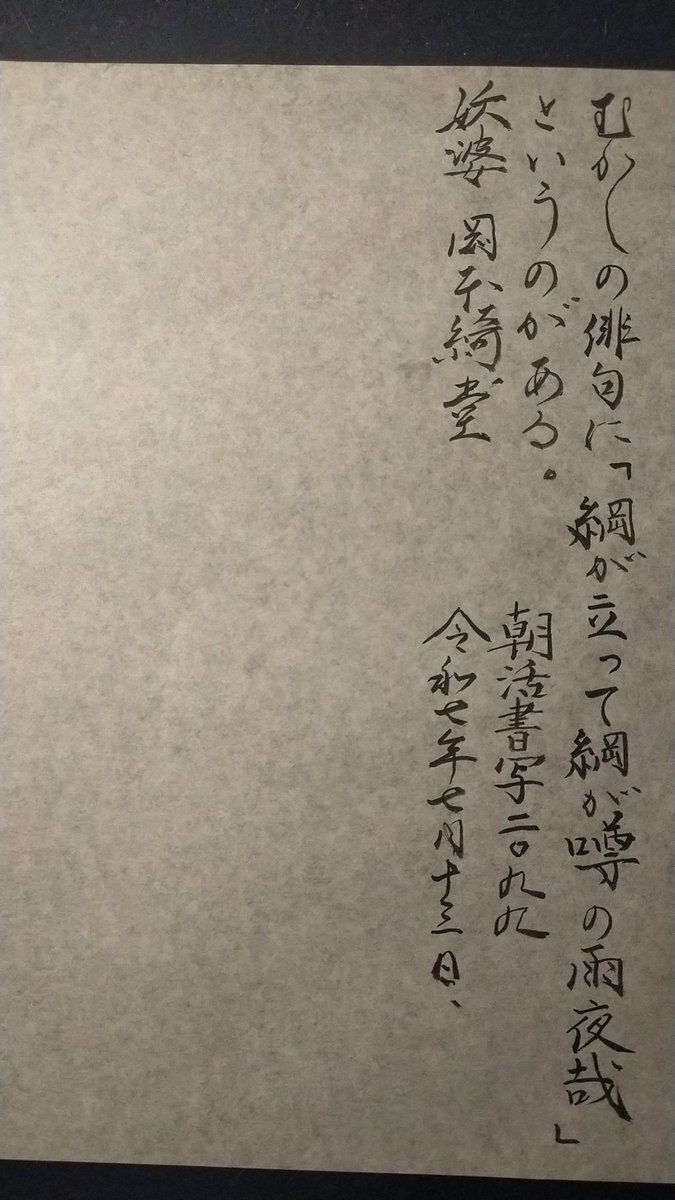 むかしの俳句に「綱が立って綱が噂の雨夜哉」
というのがある。
妖婆 岡本綺堂
朝活書写二〇九九
令和七年七月十三日、